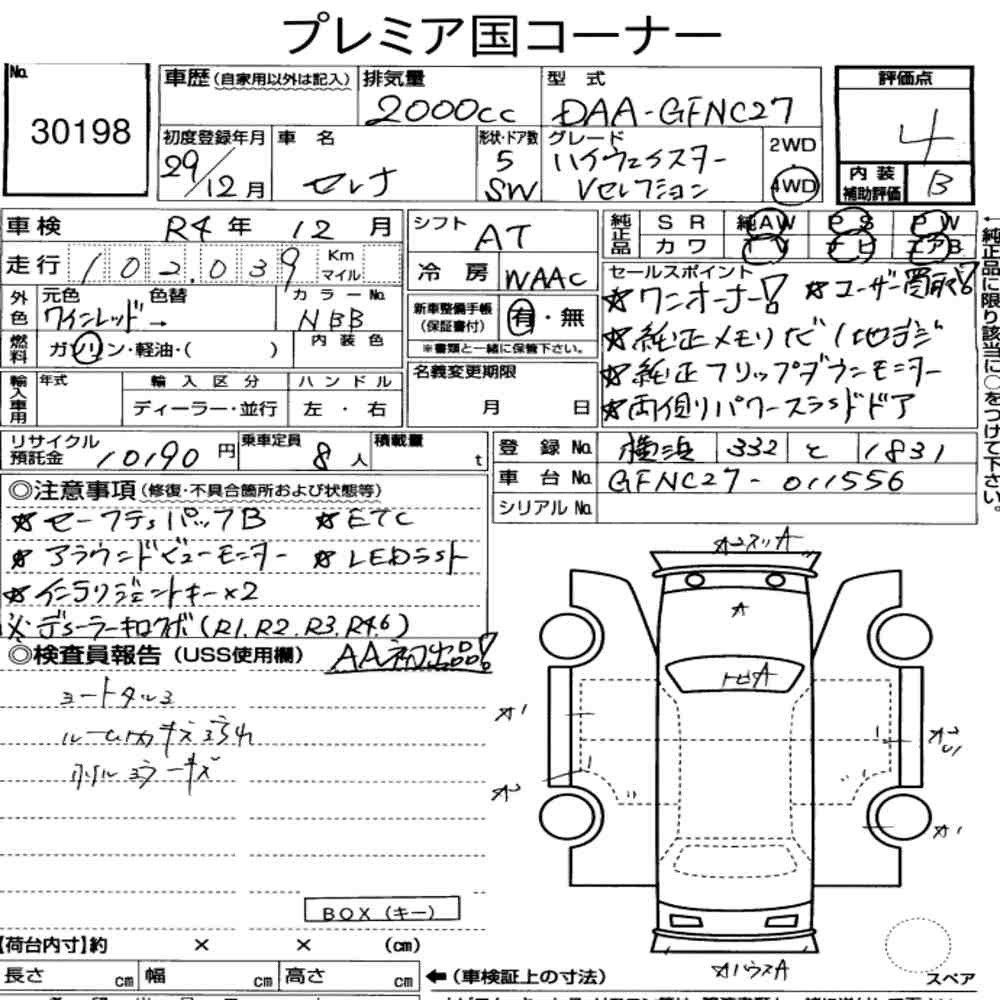 プレミア国コーナー
No. 30198
車歴 (自家用以外は記入) 排気量 2000cc 型式 DAA-GFNC27
初度登録年月 29/12月 車名 セレナ 形状・ドア数 5 SW グレード ハイウェイスター Vセレクション 2WD ・ 4WD
評価点 4
内装補助評価 B
車検 R4年 12月
走行 102,039 Km マイル
外色 元色 ワインレッド→ 色替 カラーNo. NBB
燃料 ガソリン・軽油・( ) 内装色
輸入車用 年式 輸入区分 ディーラー・並行 ハンドル 左・右
シフト AT
冷房 WAAC
新車整備手帳 (保証書付) 有・無
※書類と一緒に保管下さい。
名義変更期限 月 日
純正品 SR 純AW PS PW
カワ TV ナビ エアB
セールスポイント
☆ワンオーナー! ☆ユーザー買取!
☆純正メモリナビ/地デジ
☆純正フリップダウンモニター
☆両側パワースライドドア
←純正品に限り該当に○をつけて下さい。
リサイクル預託金 10190円 乗車定員 8人 積載量 t
登録No. 横浜 332 と 1831
車台No. GFNC27-011556
シリアルNo.
◎注意事項 (修復・不具合箇所および状態等)
☆セーフティパックB ☆ETC
☆アラウンドビューモニター ☆LEDライト
☆インテリジェントキー×2
※ディーラーキロクボ(R1.R2.R3.R4.6)
◎検査員報告 (USS使用欄) AA初出品!
ルーム内キズ
BOX (キー)
【荷台内寸】約 × × (cm)
長さ cm 幅 cm 高さ cm
←(車検証上の寸法)
A
A1
A1
スペア